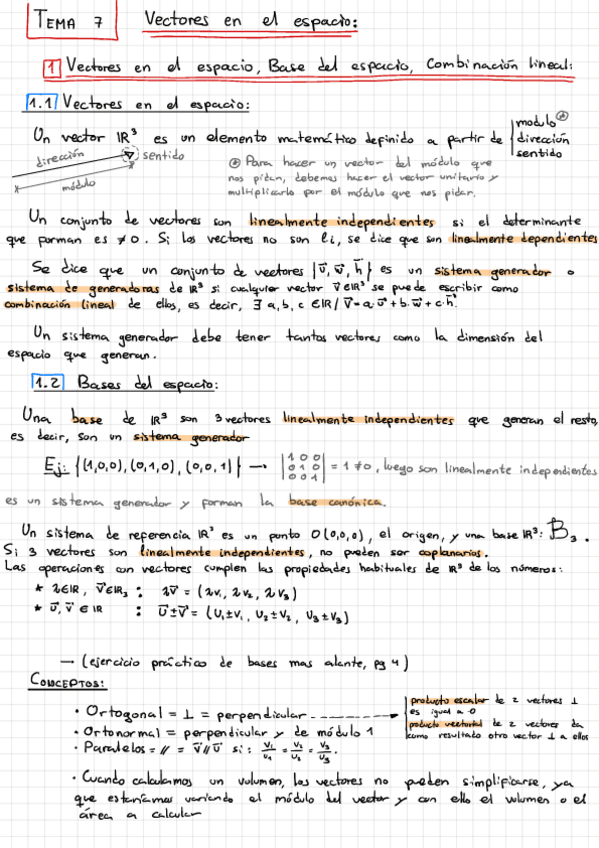 TEMA 7 Vectores en el espacio:
1 Vectores en el espacio, Base del espacio, Combinación lineal:
1.1 Vectores en el espacio:
Un vector IR³ es un elemento matemático definido a partir de | modulo ⊛
dirección
sentido
dirección sentido
módulo
⊛ Para hacer un vector del módulo que
nos pidan, debemos hacer el vector unitario y
multiplicarlo por el módulo que nos pidan.
Un conjunto de vectores son linealmente independientes si el determinante
que forman es ≠ 0. Si los vectores no son li, se dice que son linealmente dependientes
Se dice que un conjunto de vectores {v⃗, w⃗, h⃗} es un sistema generador o
sistema de generadoras de IR³ si cualquier vector v⃗ ∈ IR³ se puede escribir como
combinación lineal de ellos, es decir, ∃ a, b, c ∈ IR / v⃗ = a·u⃗ + b·w⃗ + c·h⃗.
Un sistema generador debe tener tantos vectores como la dimensión del
espacio que generan.
1.2 Bases del espacio:
Una base de IR³ son 3 vectores linealmente independientes que generan el resto,
es decir, son un sistema generador
Ej: {(1,0,0), (0,1,0), (0,0,1)} → |1 0 0
0 1 0
0 0 1| = 1 ≠ 0, luego son linealmente independientes
es un sistema generador y forman la base canónica.
Un sistema de referencia IR³ es un punto O(0,0,0), el origen, y una base IR³: B₃.
Si 3 vectores son linealmente independientes, no pueden ser coplanarios.
Las operaciones con vectores cumplen las propiedades habituales de IR³ de los números:
* λ∈IR, v⃗∈IR₃ : λv⃗ = (λv₁, λv₂, λv₃)
* u⃗, v⃗ ∈ IR : u⃗±v⃗ = (U₁±V₁, U₂±V₂, U₃±V₃)
→ (ejercicio práctico de bases mas alante, pg 4)
CONCEPTOS:
· Ortogonal = ⊥ = perpendicular → producto escalar de 2 vectores ⊥
es igual a 0
producto vectorial de 2 vectores da
como resultado otro vector ⊥ a ellos
· Ortonormal = perpendicular y de módulo 1
· Paralelos = // = v⃗//u⃗ si: V₁/U₁ = V₂/U₂ = V₃/U₃.
· Cuando calculamos un volumen, los vectores no pueden simplificarse, ya
que estaríamos variando el módulo del vector y con ello el volumen o el
área a calcular